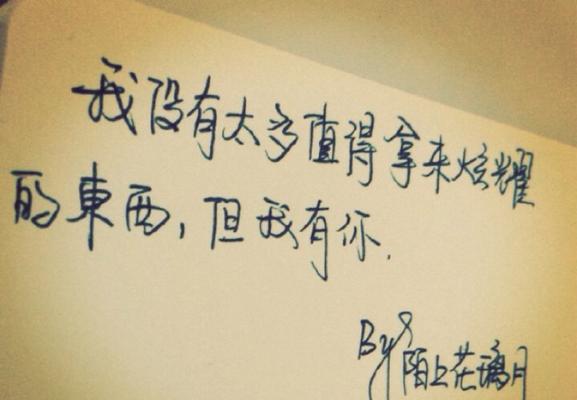 我没有太多值得拿来炫耀
的東西,但我有你.
By 陌上花璃月